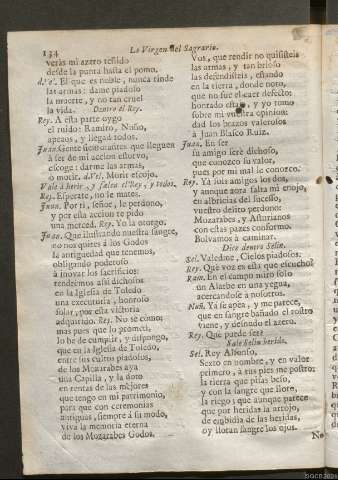 134
La Virgen del Sagrario.
veràs mi azero teñido
desde la punta hasta el pomo.
El que es noble, nunca rinde
las armas: dame piadoso
la muerte, y no tan cruel
la vida. Dentro el Rey.
Rey. A esta parte oygo
el ruido: Ramiro, Nuño,
apeaos, y llegad todos.
Juan. Gente siento: antes que lleguen
à ser de mi accion estorvo,
escoge: darme las armas,
ò morir. Morir escojo.
Vale à herir, y salen el Rey, y todos.
Rey. Esperate, no le mates.
Juan. Por ti, señor, le perdono,
y por esta accion te pido
una merced. Rey. Yo la otorgo.
Juan. Que ilustrando nuestra sangre,
no nos quites à los Godos
la antiguedad que tenemos,
obligando poderoso
à inovar los sacrificios:
tendrémos assi dichosos
en la Iglesia de Toledo
una executoria, honroso
solar, por esta victoria
adquirido. Rey. No sé còmo;
mas pues que lo prometì,
lo he de cumplir, y dispongo,
que en la Iglesia de Toledo,
entre sus cultos piadosos,
de los Mozarabes aya
una Capilla, y la doto
en rentas de las mejores
que tengo en mi patrimonio,
para que con ceremonias
antiguas, siempre à su modo,
viva la memoria eterna
de los Mozarabes Godos.
Vos, que rendir no quisisteis
las armas, y tan brioso
las defendisteis, estando
en la tierra, donde noto,
que no fue el caer defecto:
honrado estais, y yo tomo
sobre mi vuestra opinion:
dad los brazos valerosos
à Juan Blasco Ruiz.
Juan. En ser
su amigo serè dichoso,
que conozco su valor,
pues por mi mal le conozco.
Rey. Ya sois amigos los dos,
y aunque aora falta mi enojo,
en albricias del sucesso,
vuestro delito perdono:
Mozarabes, y Asturianos
con estas pazes conformo.
Bolvamos à caminar.
Dice dentro Selin.
Sel. Valedme, Cielos piadosos.
Rey. Què voz es esta que escucho?
Ram. En el campo miro solo
un Alarbe en una yegua,
acercandose à nosotros.
Nuñ. Ya se apea, y me parece,
que en sangre bañado el rostro
viene, y desnudo el azero.
Rey. Què puede ser?
Sale Selin herido.
Sel. Rey Alfonso,
Sexto en nombre, y en valor
primero, à tus pies me postro:
la tierra que pisas beso,
y con la sangre que lloro,
la riego; que aunque parece
que por heridas la arrojo,
de embidia de las heridas,
oy lloran sangre los ojos.
No